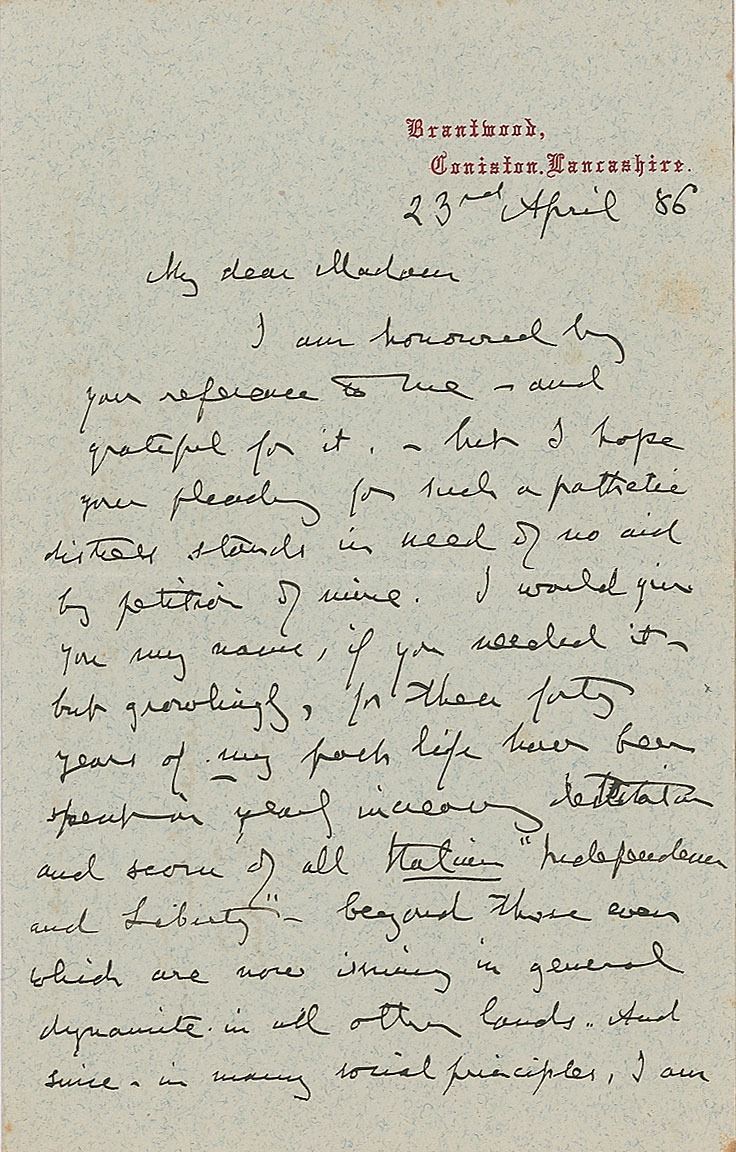 Brantwood,
Coniston. Lancashire.
23rd April 86
My dear Madam
I am honoured by
your reference to me – and
grateful for it. – but I hope
your pleading for such a pathetic
distress stands in need of no aid
by petition of mine. I would give
you my name, if you needed it –
but growlingly, for these forty
years of my past life have been
spent in yearly increasing detestation
and scorn of all Italian "Independence
and Liberty" – beyond those even
which are now issuing in general
dynamite in all other lands. And
since – in many social principles, I am